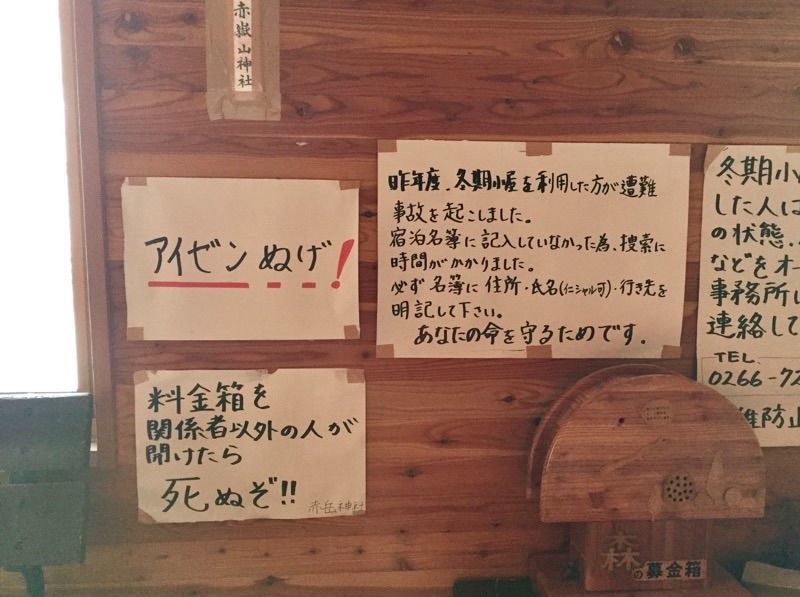 赤嶽山神社
アイゼンぬげ!
昨年度、冬期小屋を利用した方が遭難
事故を起こしました。
宿泊名簿に記入していなかった為、捜索に
時間がかかりました。
必ず名簿に住所・氏名(イニシャル可)・行き先を
明記して下さい。
あなたの命を守るためです。
冬期小
した人は
の状態、
などをオ
事務所
連絡して
TEL.
0266-72
防山
料金箱を
関係者以外の人が
開けたら
死ぬぞ!!
赤岳神社
森
の募金箱